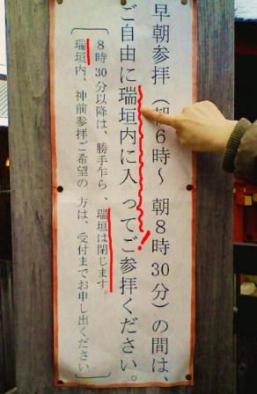 早朝参拝（朝6時～ 朝8時30分）の間は、
ご自由に瑞垣内に入ってご参拝ください。
8時30分以降は、勝手乍ら、瑞垣は閉じます。
瑞垣内、神前参拝ご希望の方は、受付までお申し出ください